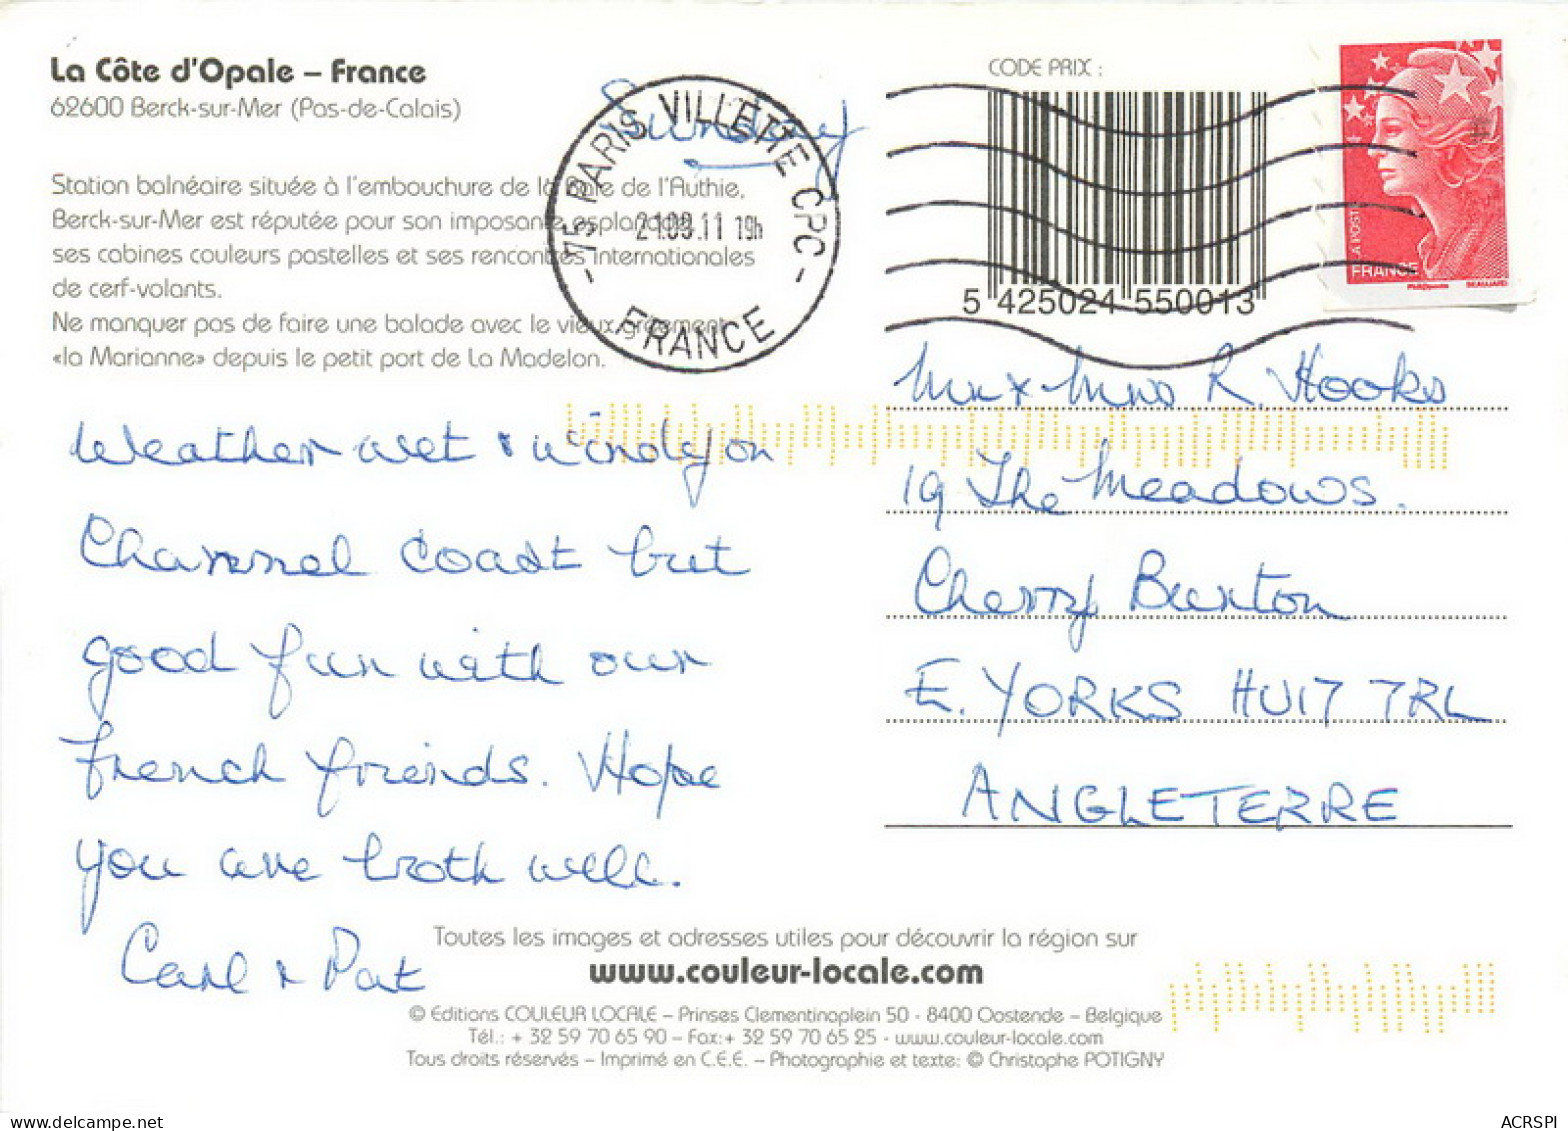 La Côte d'Opale – France
62600 Berck-sur-Mer (Pas-de-Calais)
Station balnéaire située à l'embouchure de la Baie de l'Authie,
Berck-sur-Mer est réputée pour son imposante esplanade,
ses cabines couleurs pastelles et ses rencontres internationales
de cerf-volants.
Ne manquer pas de faire une balade avec le vieux gréement
«la Marianne» depuis le petit port de La Madelon.
Sunday
75 PARIS VILLETTE CPC
19h
FRANCE
CODE PRIX :
5 425024 550013
LA POSTE
FRANCE
Phil@poste
BEAUJARD
Weather wet & windy on
Channel coast but
good fun with our
french friends. Hope
you are both well.
Carl & Pat
Mr & Mrs R. Hooks
19 The Meadows.
Cherry Burton
E. YORKS HU17 7RL
ANGLETERRE
Toutes les images et adresses utiles pour découvrir la région sur
www.couleur-locale.com
© Editions COULEUR LOCALE – Prinses Clementinaplein 50 - 8400 Oostende – Belgique
Tél.: + 32 59 70 65 90 – Fax:+ 32 59 70 65 25 - www.couleur-locale.com
Tous droits réservés – Imprimé en C.E.E. – Photographie et texte: © Christophe POTIGNY
ACRSPI